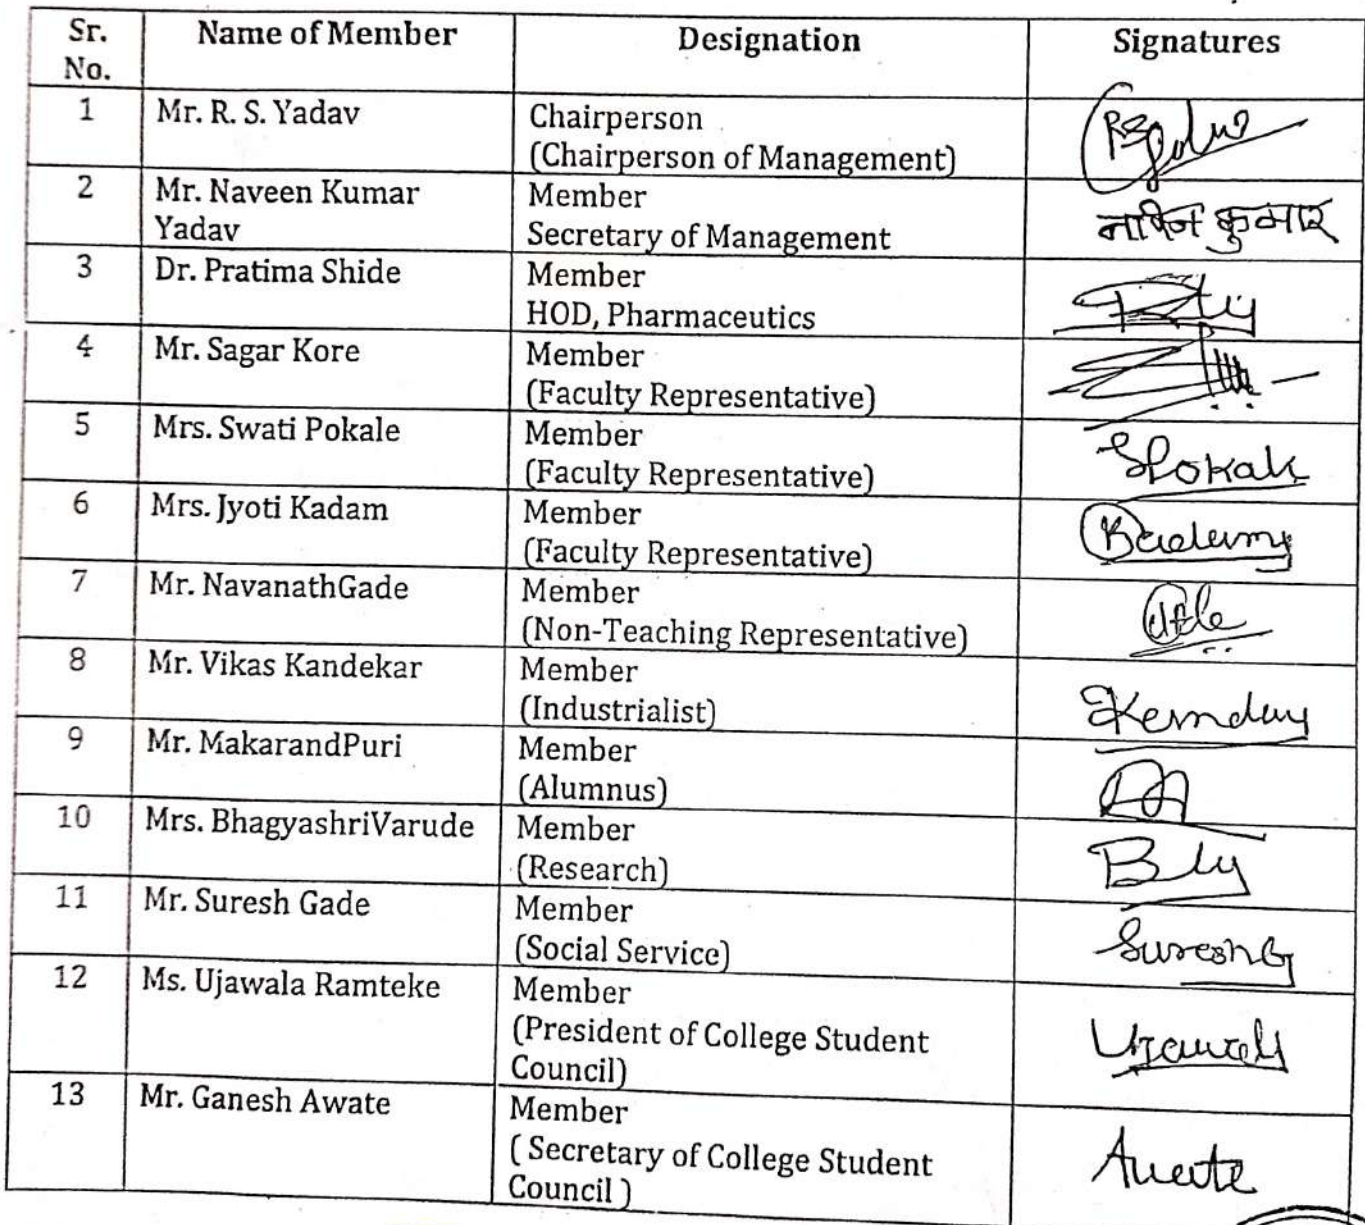 Sr. No. Name of Member Designation Signatures
1 Mr. R. S. Yadav Chairperson
(Chairperson of Management)
2 Mr. Naveen Kumar Yadav Member
Secretary of Management कुमार
3 Dr. Pratima Shide Member
HOD, Pharmaceutics
4 Mr. Sagar Kore Member
(Faculty Representative)
5 Mrs. Swati Pokale Member
(Faculty Representative)
6 Mrs. Jyoti Kadam Member
(Faculty Representative)
7 Mr. NavanathGade Member
(Non-Teaching Representative)
8 Mr. Vikas Kandekar Member
(Industrialist)
9 Mr. MakarandPuri Member
(Alumnus)
10 Mrs. BhagyashriVarude Member
(Research)
11 Mr. Suresh Gade Member
(Social Service) SureshG
12 Ms. Ujawala Ramteke Member
(President of College Student
Council)
13 Mr. Ganesh Awate Member
( Secretary of College Student
Council ) Awate